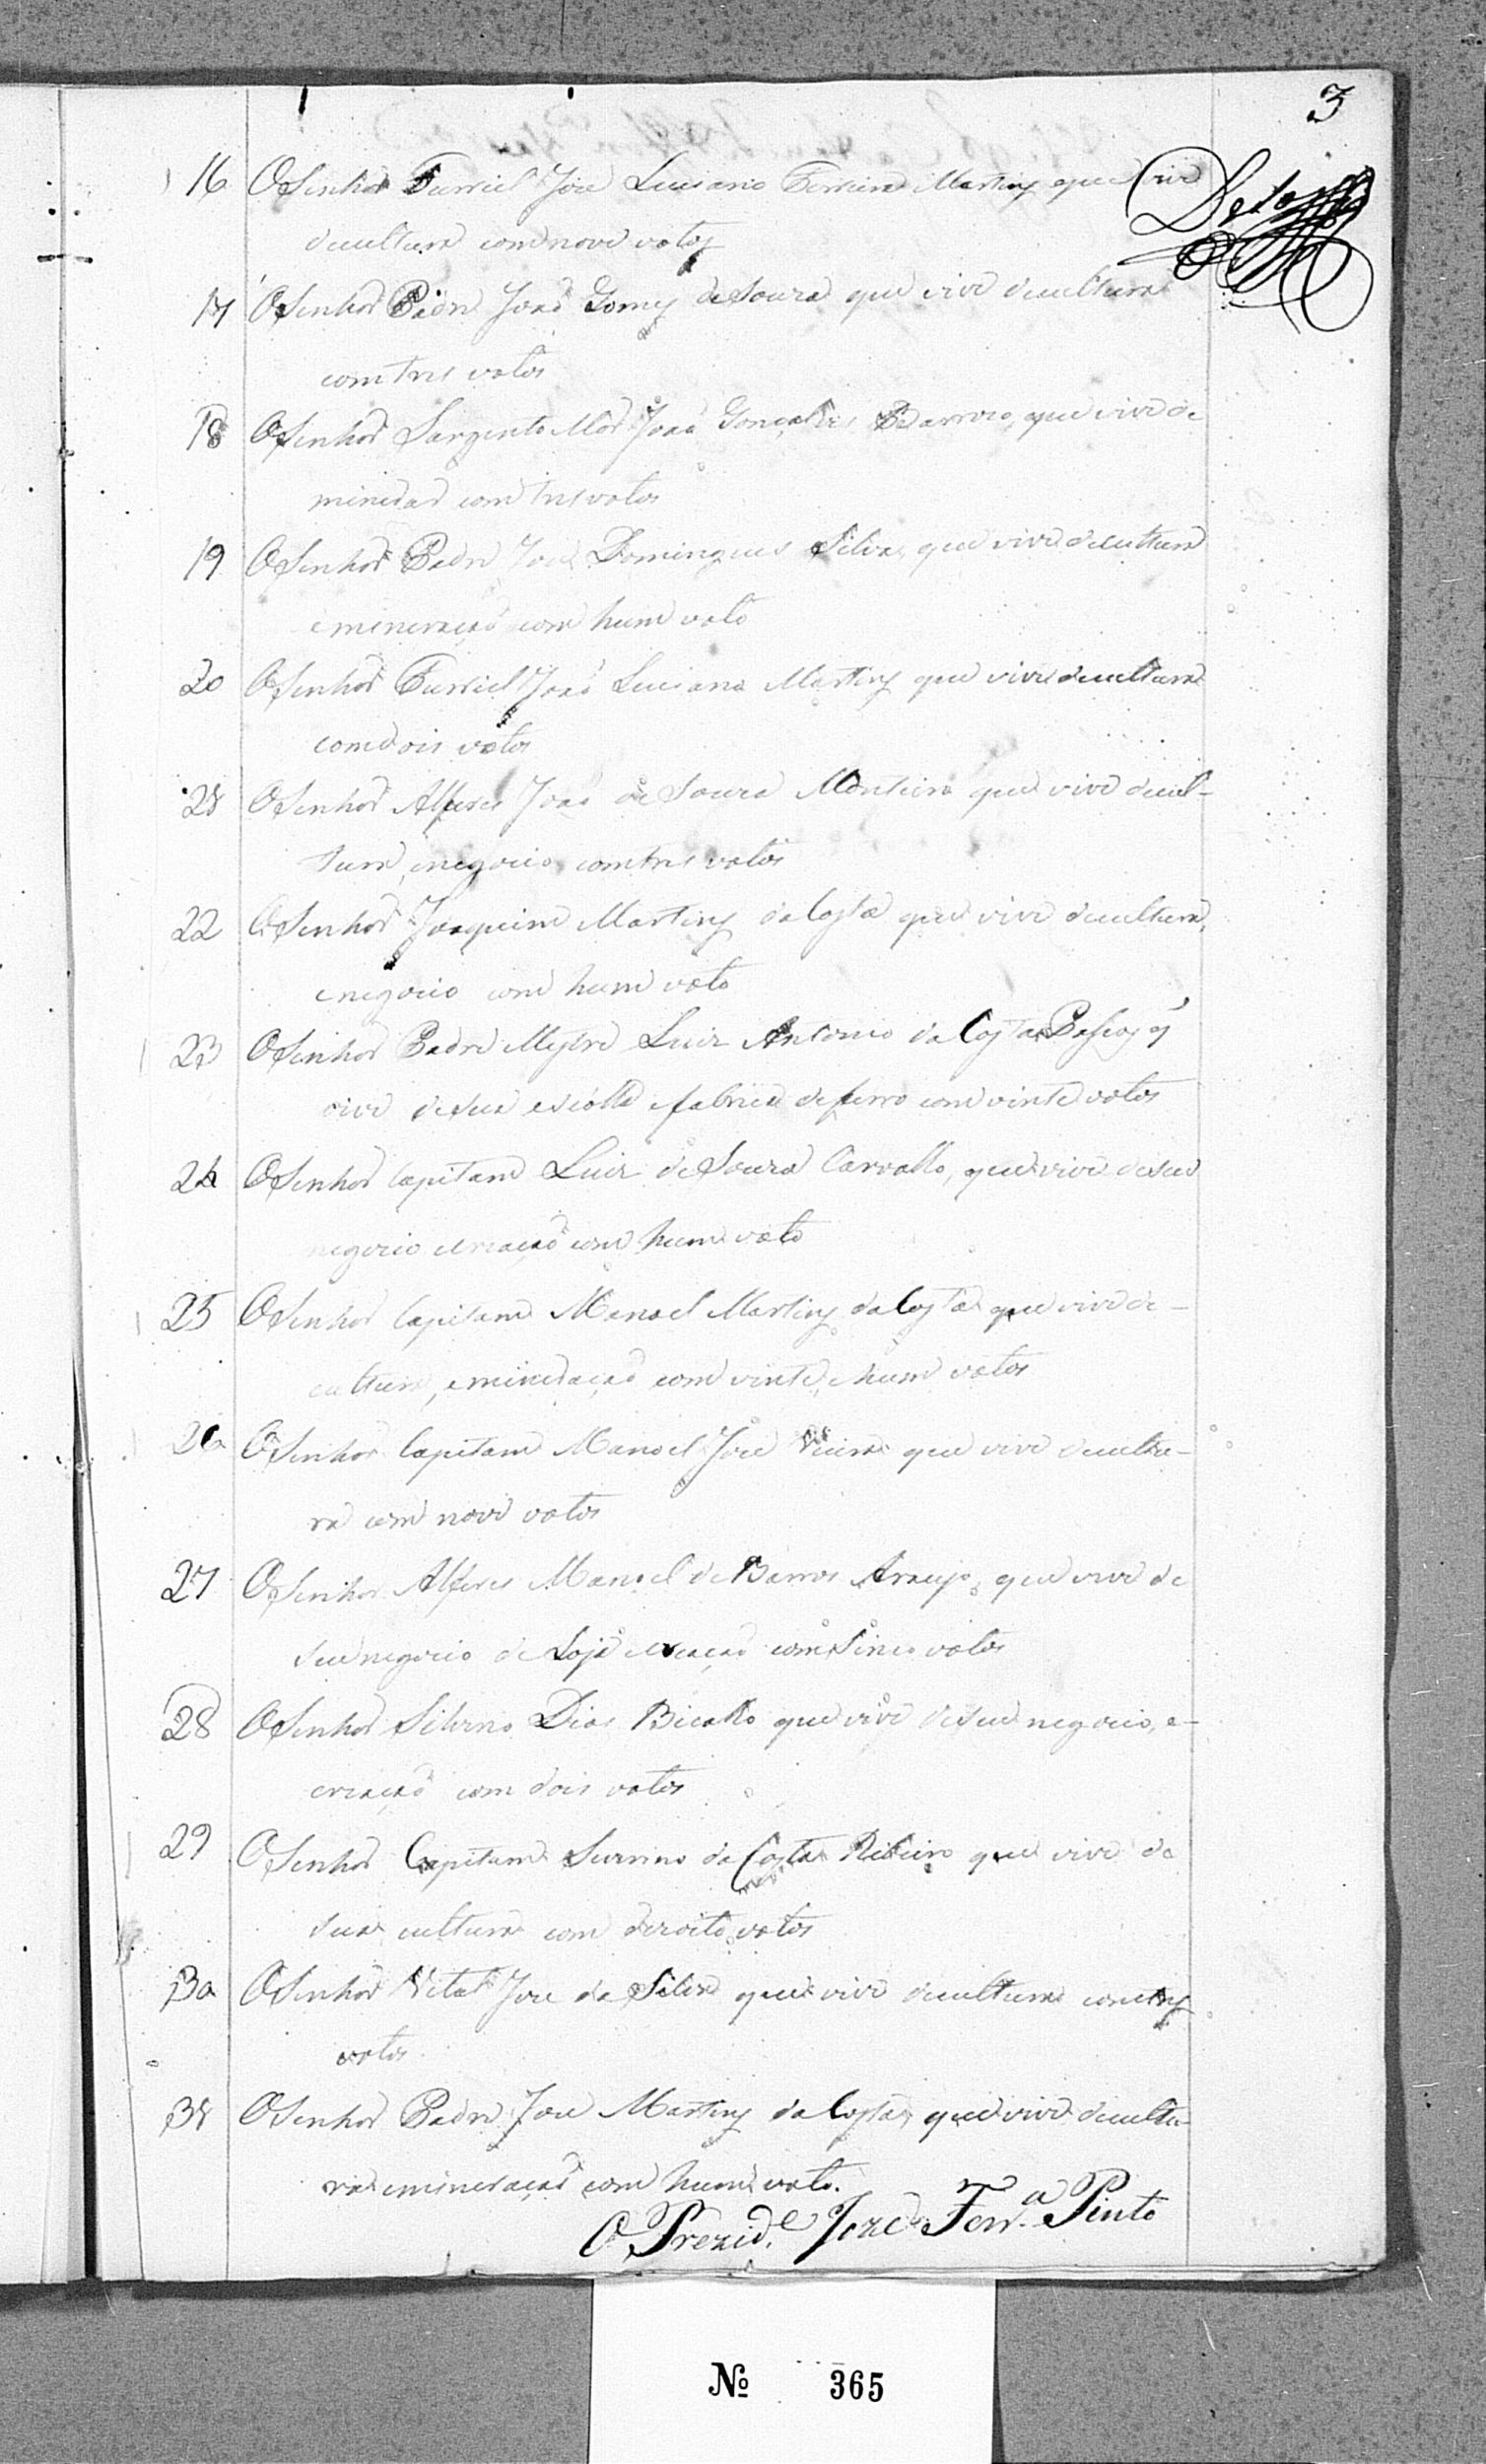 3
16 O Senhor Furriel Joze Luciano Ferreira Martins que vive
decultura com nove votos
17 O Senhor Padre João Gomes de Souza que vive decultura
com tres votos
18 O Senhor Sargento Mor João Gonçalves Barrozo, que vive de
com tres votos
19 O Senhor Padre Domingues Silva que vive decultura
emineração com hum voto
20 O Senhor Furriel João Luciano Martins que vive decultura
com dois votos
21 O Senhor Alferes João de Souza Monteiro que vive decul-
tura, enegocio com tres votos
22 O Senhor Joaquim Martins da Costa que vive decultura,
enegocio com hum voto
23 O Senhor Padre Mestre Luiz Antonio da Costa q'
vive desua escolla efabrica deferro com vinte votos
24 O Senhor Capitam Luiz de Souza Carvalho, que vive deseu
negocio ecriação com hum voto
25 O Senhor Capitam Manoel Martins da Costa que vive de-
cultura, emineração com vinte, ehum votos
26 O Senhor Capitam Manoel Joze Vieira que vive decultu-
ra com nove votos
27 O Senhor Alferes Manoel de Barros Araujo, que vive de
seu negocio de Loja ecriação com Sinco votos
28 O Senhor Silverio Dias Bicalho que vive deseu negocio, e-
criação com dois votos
29 O Senhor Capitam Severino da Costa Ribeiro que vive de
sua cultura com dezoito votos
30 O Senhor Vital Joze da Silva que vive decultura com tres
votos
31 O Senhor Padre Joze Martins da Costa, que vive decultu-
ra emineração com hum voto.
O Prezid.e Joze Ferr.a Pinto
Nº 365